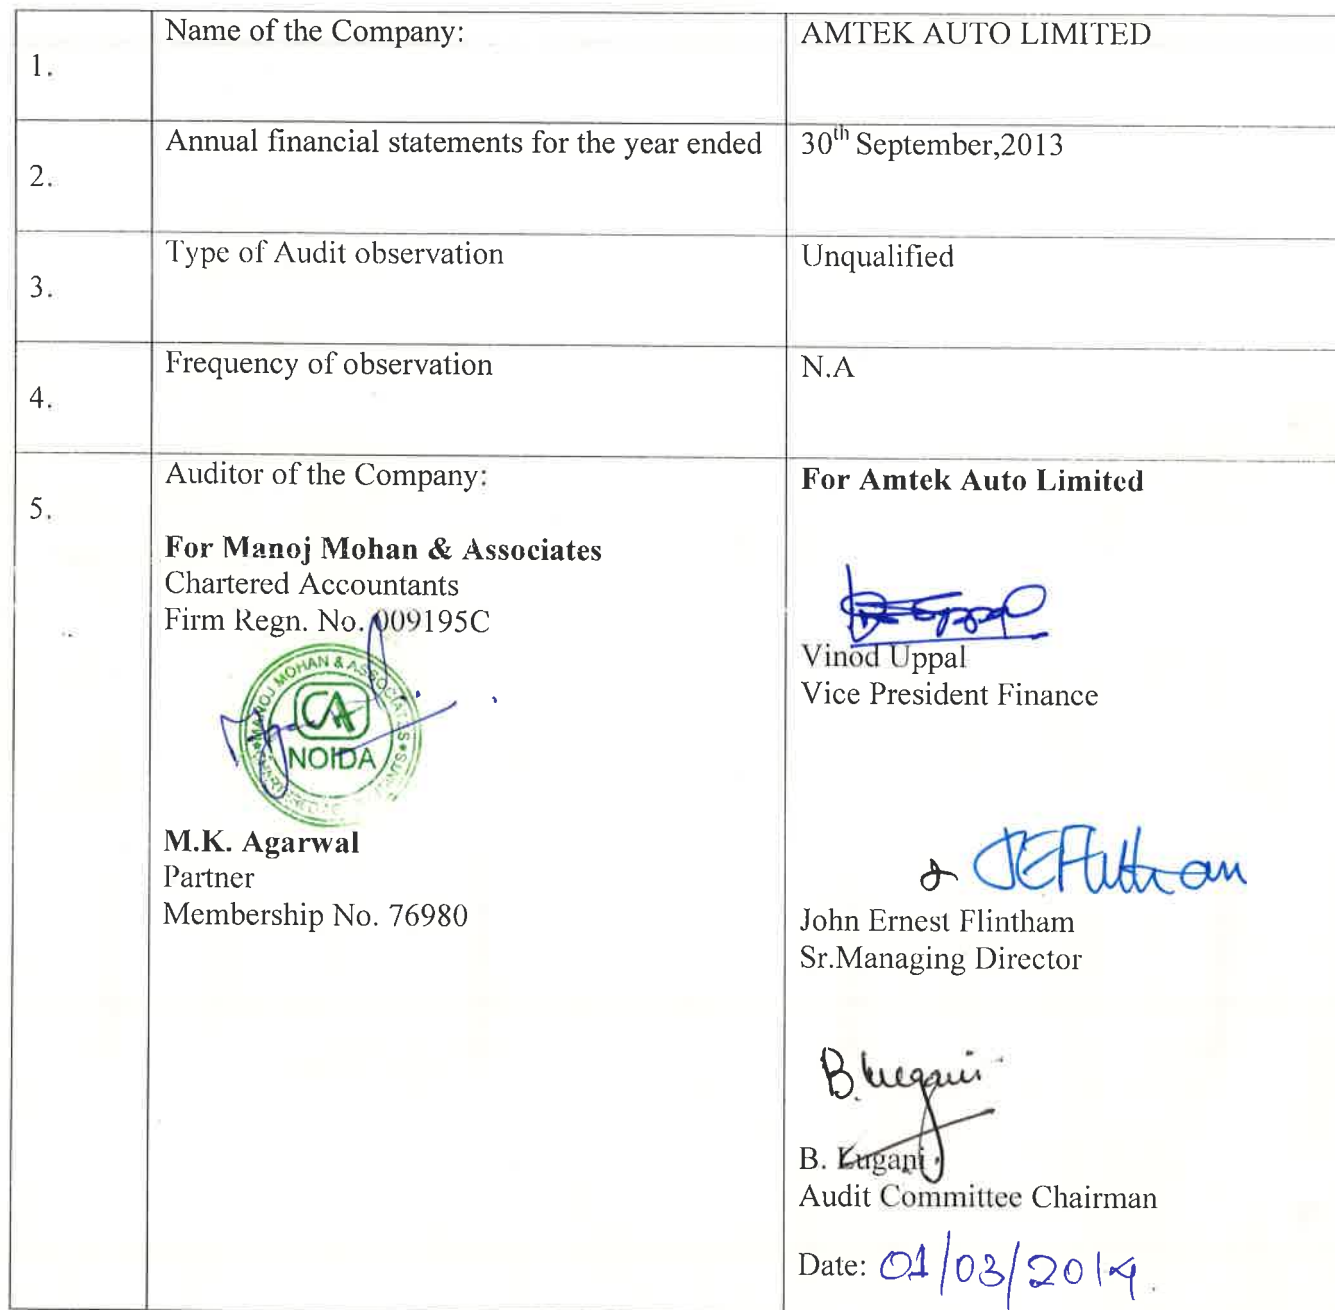 1.
Name of the Company:
AMTEK AUTO LIMITED
2.
Annual financial statements for the year ended
30th September,2013
3.
Type of Audit observation
Unqualified
4.
Frequency of observation
N.A
5.
Auditor of the Company:
For Manoj Mohan & Associates
Chartered Accountants
Firm Regn. No. 009195C
MANOJ MOHAN & ASSOCIATES
CA
NOIDA
CHARTERED ACCOUNTANTS
M.K. Agarwal
Partner
Membership No. 76980
For Amtek Auto Limited
Vinod Uppal
Vice President Finance
JEFlintham
John Ernest Flintham
Sr.Managing Director
B. Lugani
B. Lugani
Audit Committee Chairman
Date: 01/03/2014.